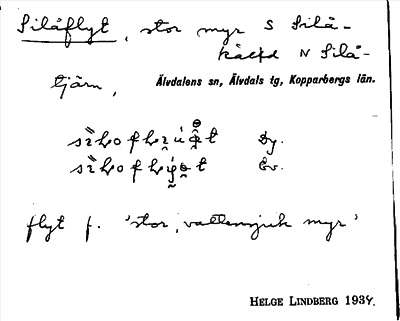 Silåflyt, stor myr S Silå-
kåled N Silå-
tjärn, Älvdalens sn, Älvdals tg, Kopparbergs län.
Dy.
Ev.
flyt f. 'stor, vattensjuk myr'
HELGE LINDBERG 1934.